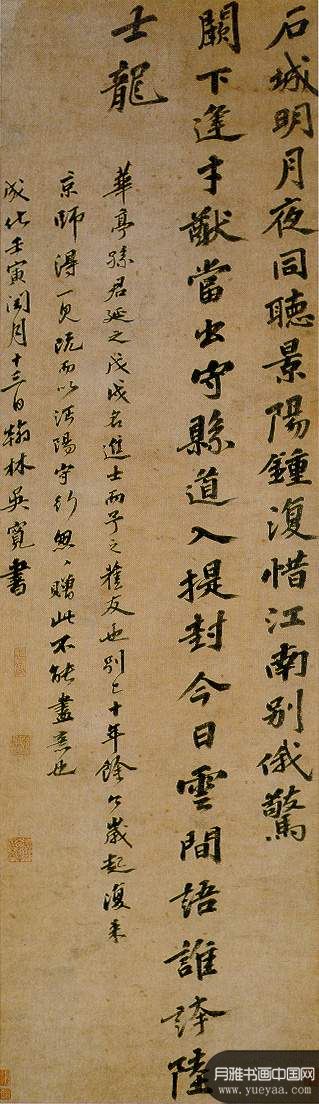 石城明月夜同聽景陽鍾復惜江南別俄驚
闕下逢才猷當出守縣道入提封今日雲間語誰誇陸
士龍
華亭孫君延之戊戌名進士而予之舊友也別已十年餘今歲起復來
京師得一見旣而以沔陽守行怱〻贈此不能盡意也
成化壬寅閏月十三日翰林吳寬書
月雅书画中国网
www.yueyaa.com